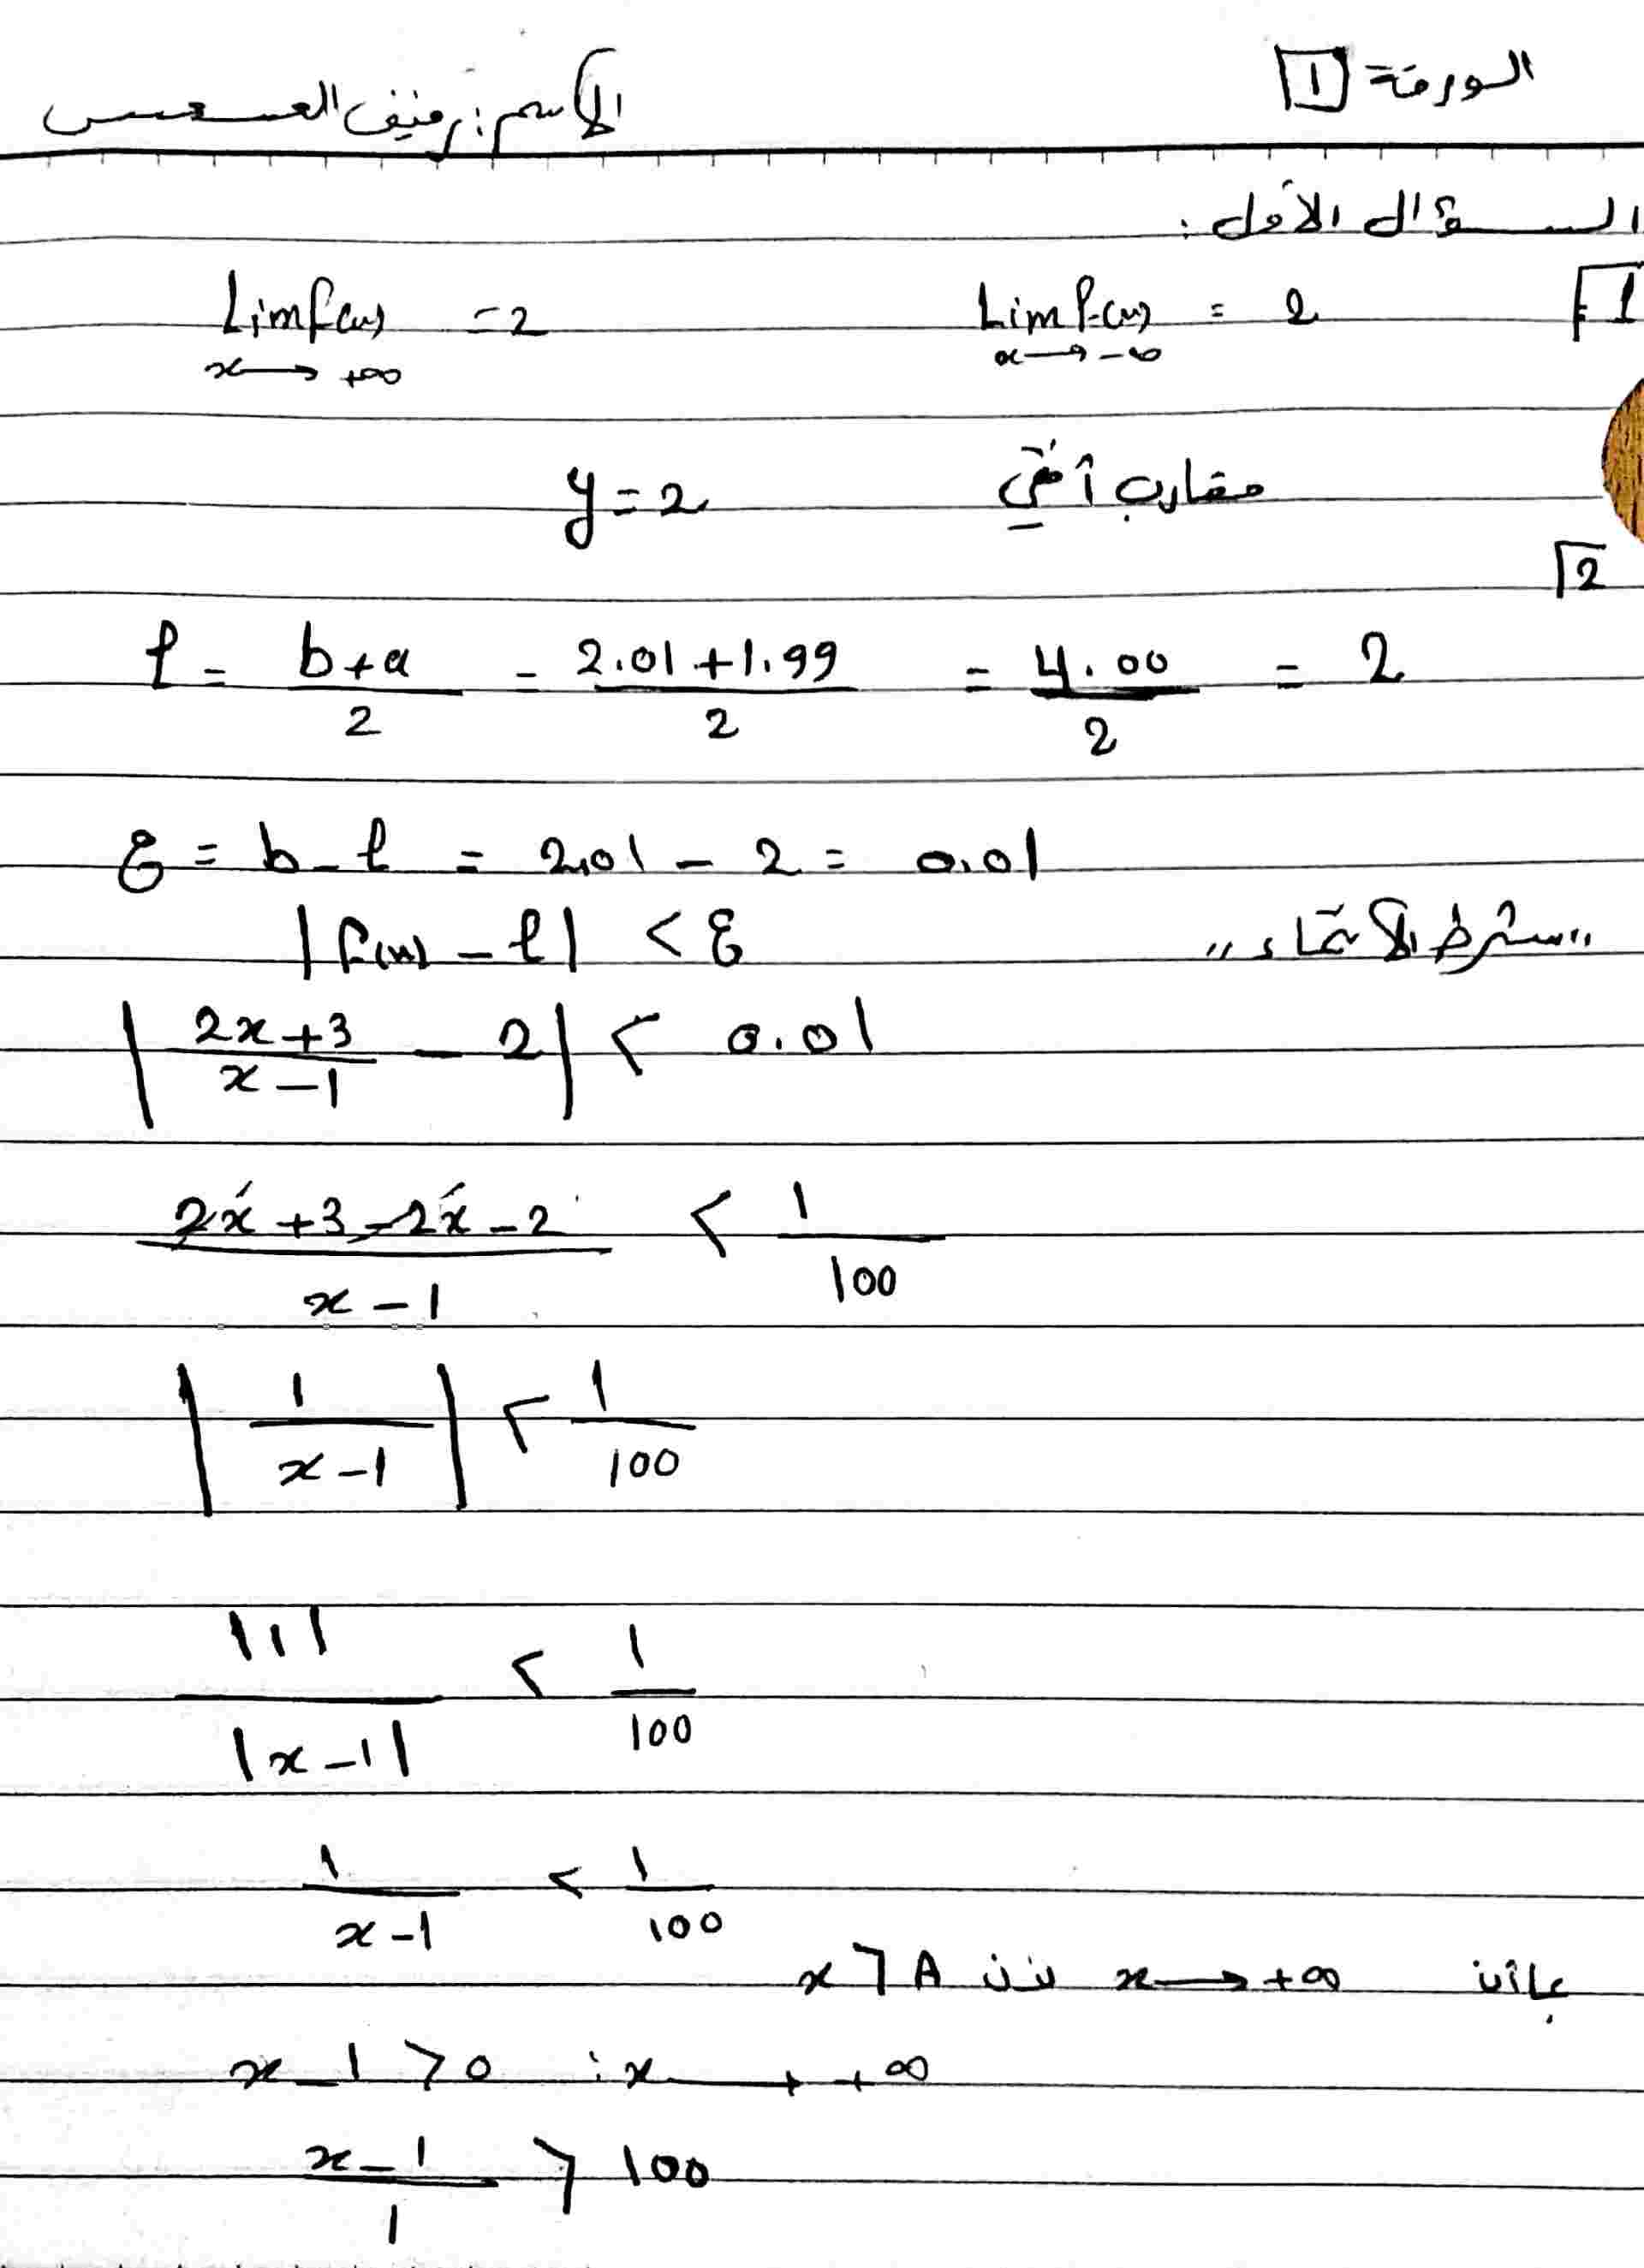 الورقة 1
الاسم: رنيف العسعس
السؤال الأول:
1 Lim f(x) = 2 Lim f(x) = 2
x → -∞ x → +∞
مقارب أفقي y = 2
2
ℓ = b+a/2 = 2.01+1.99/2 = 4.00/2 = 2
ε = b - ℓ = 2.01 - 2 = 0.01
|f(x) - ℓ| < ε "شرط الانتماء"
|2x+3/x-1 - 2| < 0.01
2x+3-2x-2/x-1 < 1/100
|1/x-1| < 1/100
|1|/|x-1| < 1/100
1/x-1 < 1/100
بما أن x → +∞ فإن x > A
x - 1 > 0 : x → +∞
x-1/1 > 100